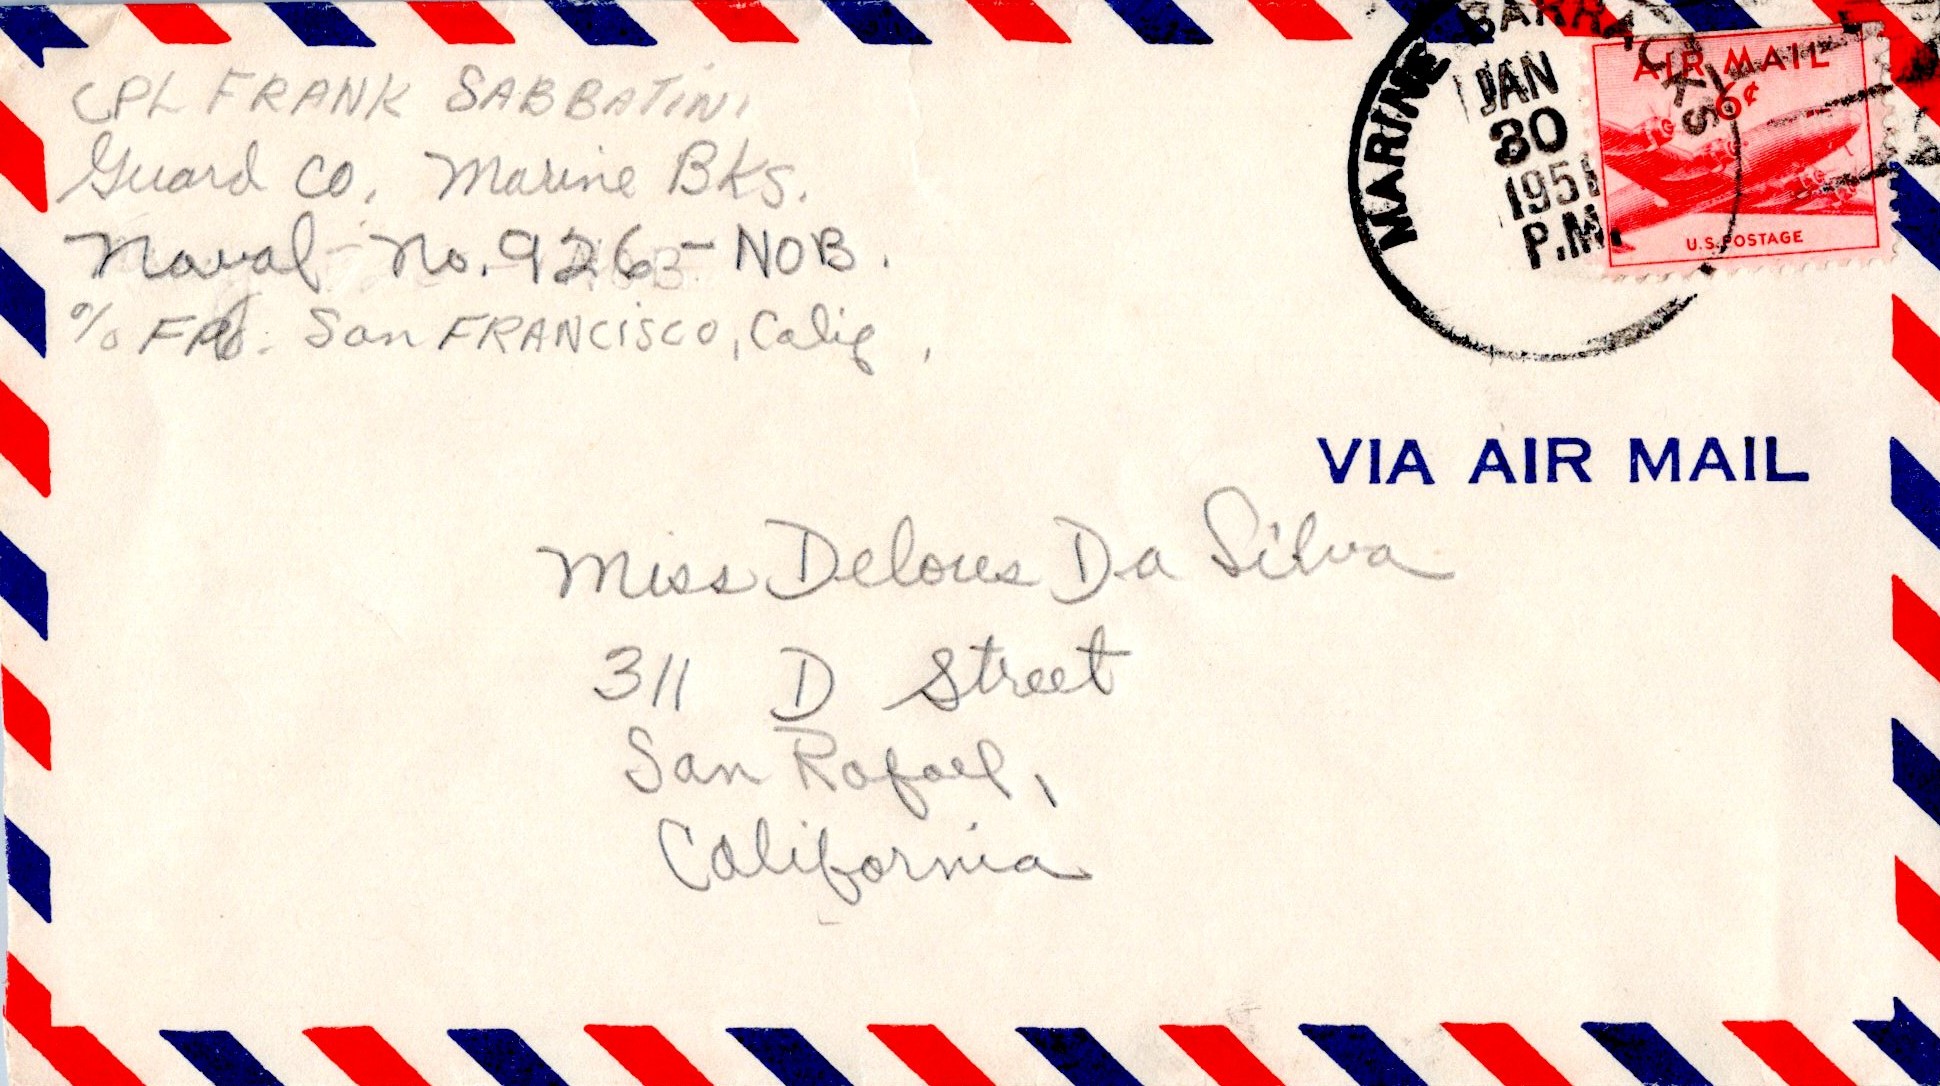 CPL FRANK SABBATINI
Guard Co, Marine Bks.
Naval No. 926 - NOB.
% FPO. San FRANCISCO, Calif,
MARINE BARRACKS
JAN
30
1951
P.M.
AIR MAIL
6¢
U.S. POSTAGE
VIA AIR MAIL
Miss Delores Da Silva
311 D Street
San Rafael,
California